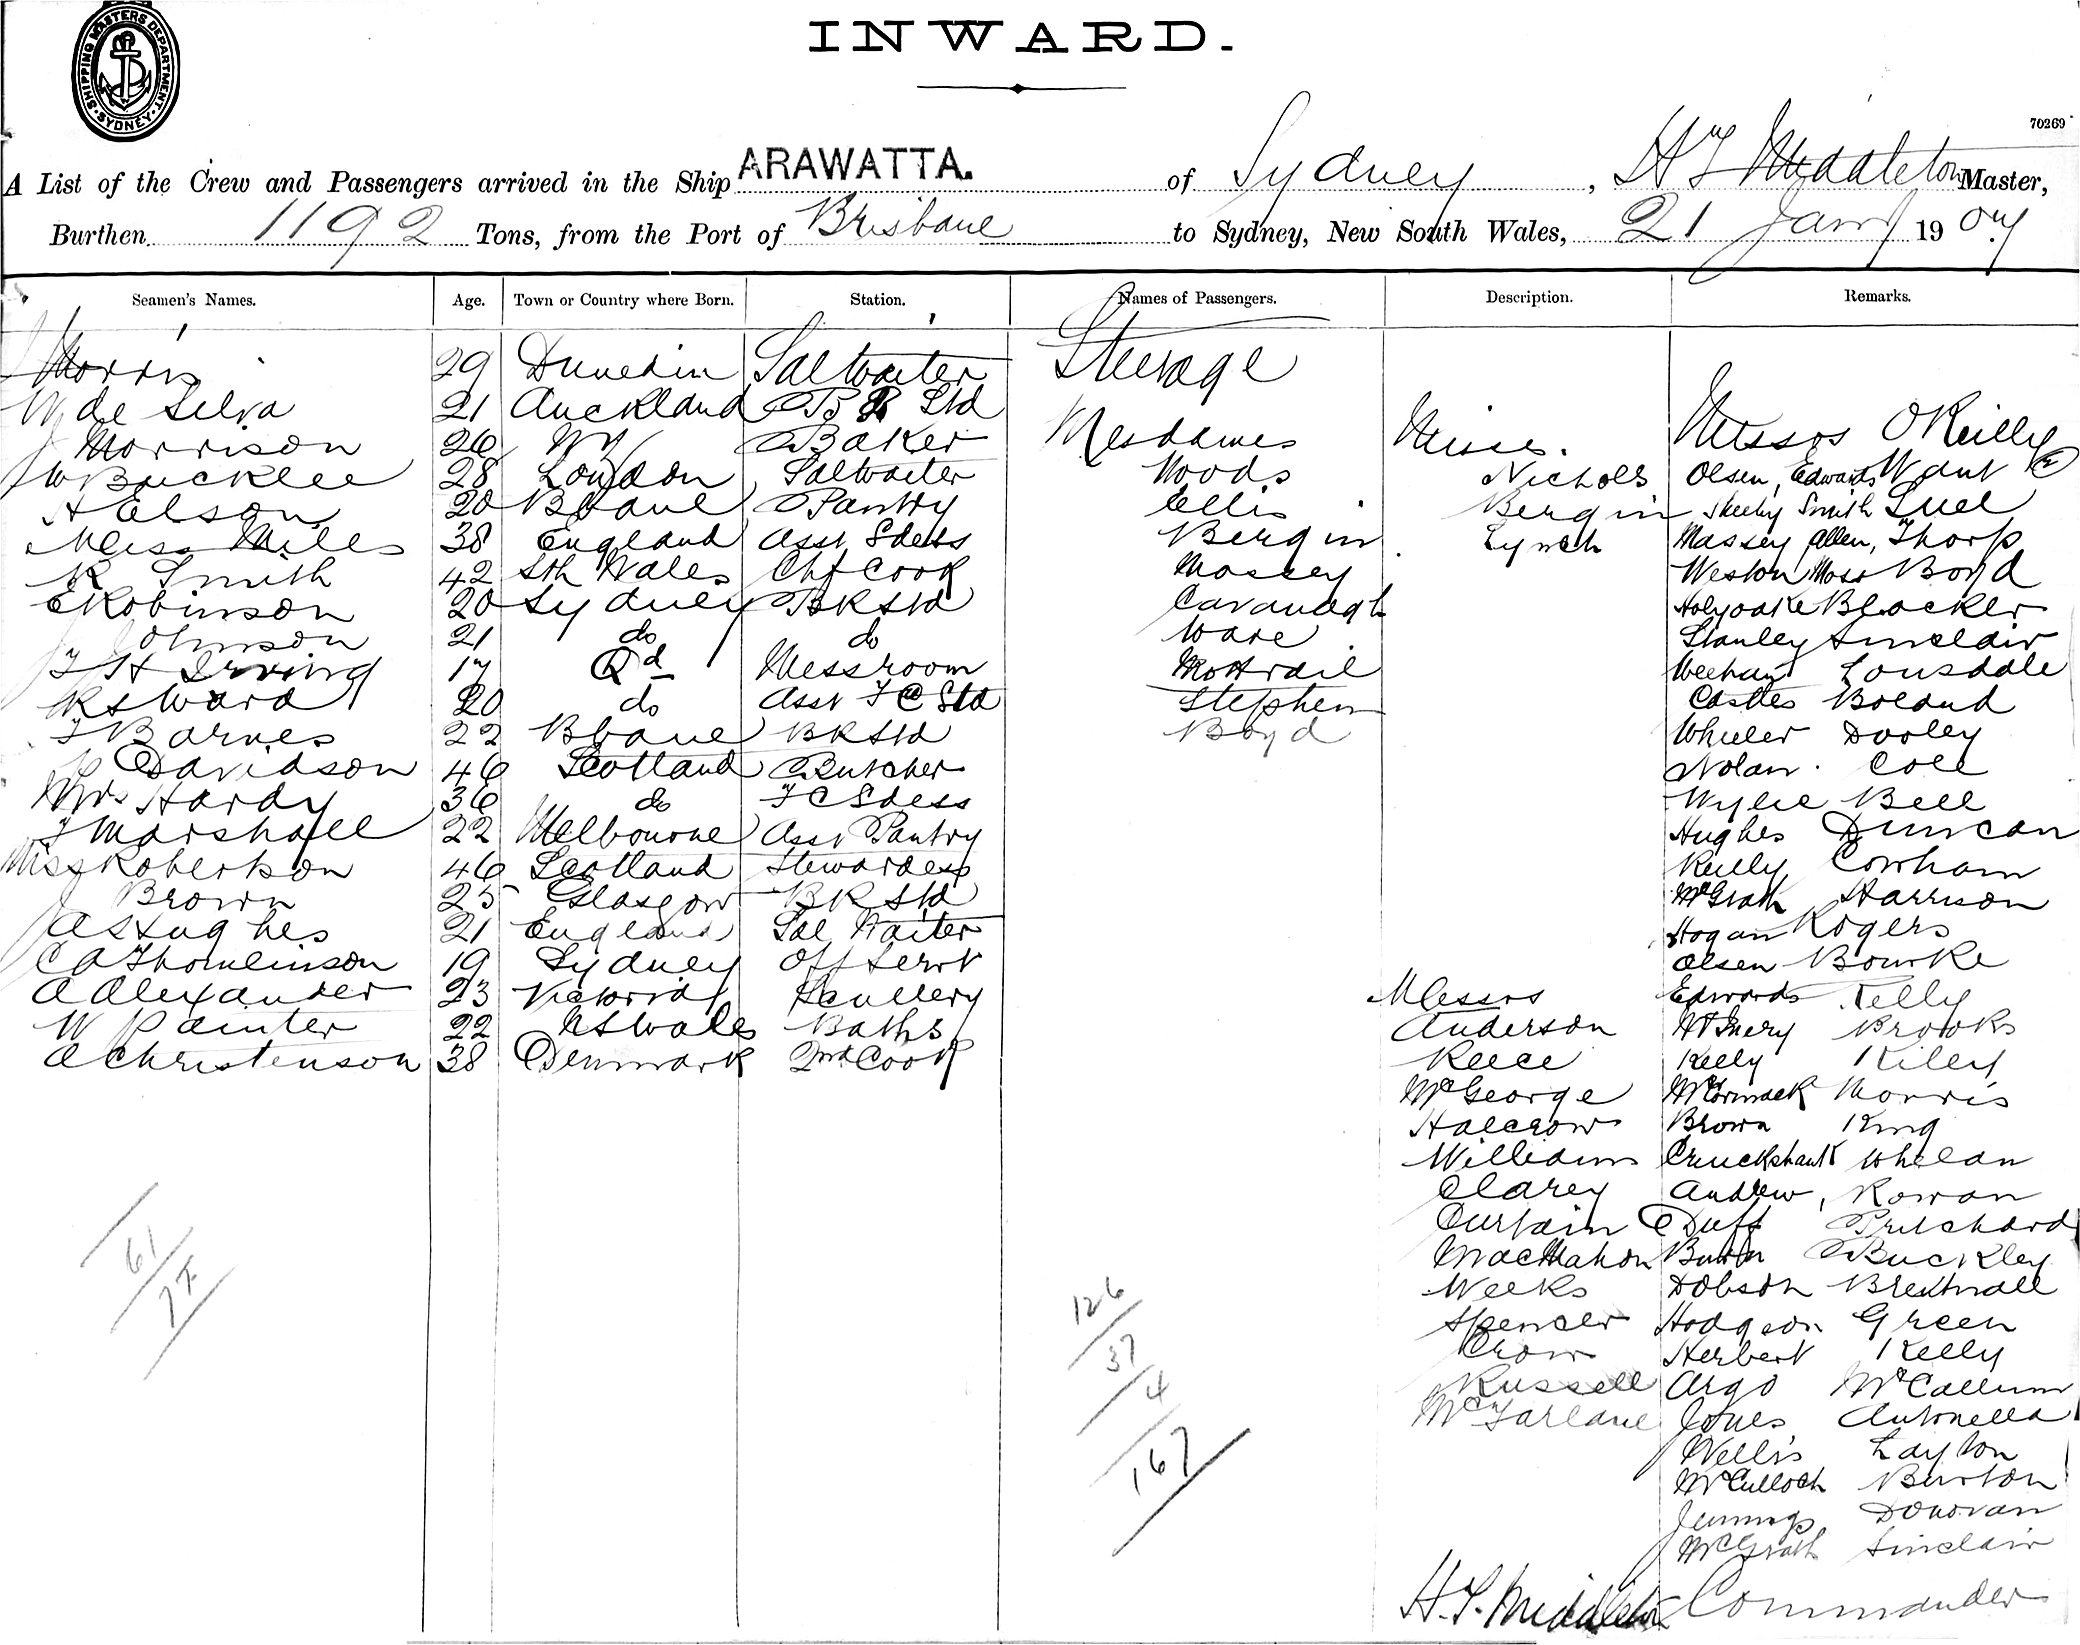 SHIPPING MASTERS DEPARTMENT
SYDNEY
INWARD.
70269
A List of the Crew and Passengers arrived in the Ship ARAWATTA. of Sydney, Middleton Master,
Burthen 1192 Tons, from the Port of Brisbane to Sydney, New South Wales, 21 Jany 1907
Seamen's Names. Age. Town or Country where Born. Station. Names of Passengers. Description. Remarks.
Morris 29 Dunedin Salwaiter Steerage
W de Silva 21 Auckland BR Std Mesdames Misses. Messrs O'Reilly
Morrison 26 NZ Baker Woods Nichols Olsen, Edwards Want
W Bucklee 28 London Saltwaiter Ellis Bergin Skeehy Smith Luel
H Elson 20 Bbane Pantry Bergin Lynch Massey Allen, Thorp
Miss Miles 38 England Asst Sdess Massey Weston Moss Boyd
R Smith 42 Sth Wales Chf Cook Cavanagh Holyoake Blocker
E Robinson 20 Sydney BR Std Ware Stanley Sinclair
Johnson 21 do do Meehan Lonsdale
T H Irving 17 Qd Messroom Stephen Castles Boland
R S Ward 20 do Asst F C Std Boyd Wheeler Dooley
T Barnes 22 Bbane BR Std Nolan. Cole
Davidson 46 Scotland Butcher Wylie Bell
Mrs Hardy 36 do F C Sdess Hughes Duncan
T Marshall 22 Melbourne Asst Pantry Reilly Cowham
Miss Robertson 46 Scotland Stewardess McGrath Harrison
J Brown 25 Glasgow BR Std Hogan Rogers
A S Hughes 21 England Sal Waiter Olsen Bourke
C A Thomlinson 19 Sydney Off Servt Messrs Edwards Kelly
A Alexander 23 Victoria Scullery Anderson Brooks
W Painter 22 N S Wales Baths Reece Kelly Kiley
A Christenson 38 Denmark 2nd Cook McGeorge McCormack Morris
Halcrow Brown King
Williams Cruickshank Whelan
Clarey Andrew, Rowan
Curtain Duff Pritchard
MacMahon Burn Buckley
Weeks Dobson Brestnall
Spencer Hodgson Green
Crow Herbert Kelly
Russell Argo McCallum
McFarlane Jones Antonella
Wellis Layton
McCulloch Burton
Jennings Donovan
McGrath Sinclair
61
126
37
4
167
H. T. Middleton Commander